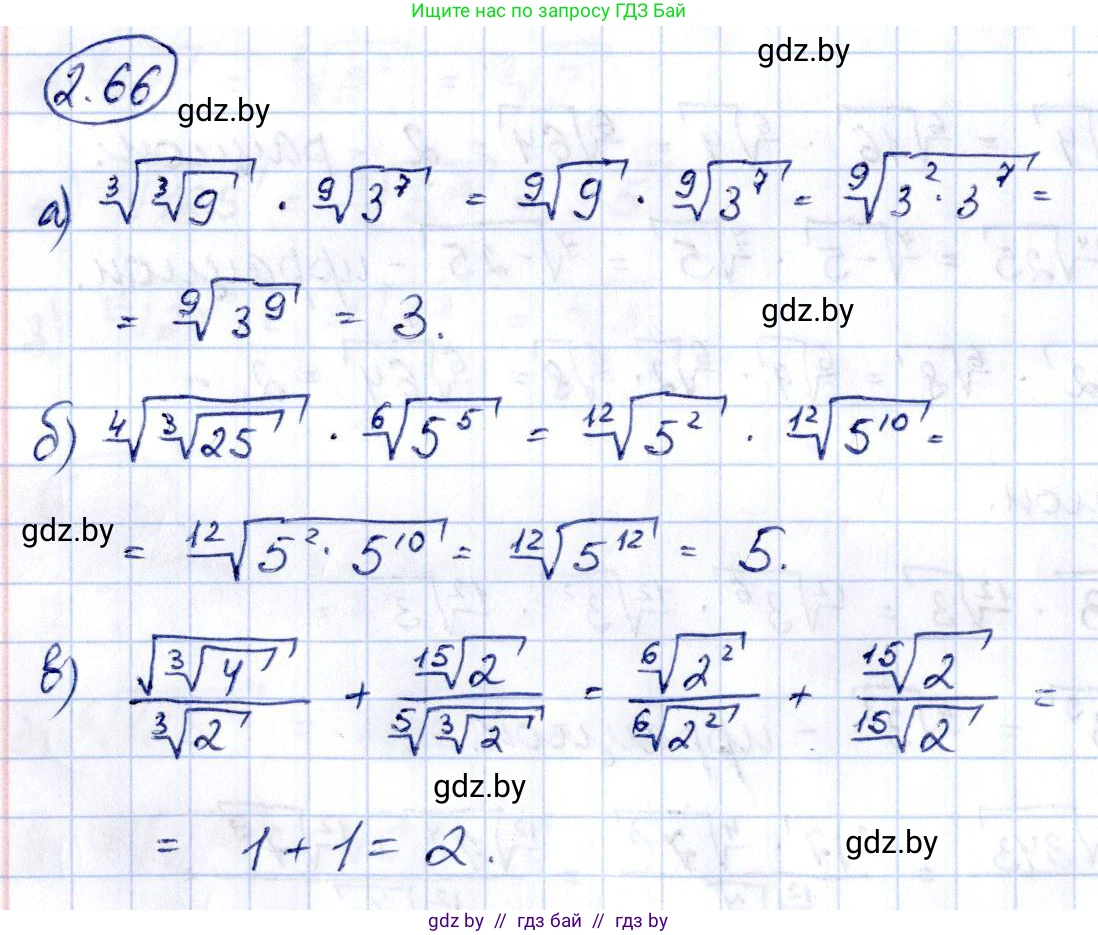 Ищите нас по запросу ГДЗ Бай
gdz.by
2.66
gdz.by
а) ∛(∛9) · ⁹√(3⁷) = ⁹√9 · ⁹√(3⁷) = ⁹√(3² · 3⁷) =
= ⁹√(3⁹) = 3.
gdz.by
б) ⁴√(∛25) · ⁶√(5⁵) = ¹²√(5²) · ¹²√(5¹⁰) =
gdz.by
= ¹²√(5² · 5¹⁰) = ¹²√(5¹²) = 5.
в) √(∛4) / ∛2 + ¹⁵√2 / ⁵√(∛2) = ⁶√(2²) / ⁶√(2²) + ¹⁵√2 / ¹⁵√2 =
gdz.by
= 1 + 1 = 2.
gdz.by
gdz by // гдз бай // гдз by